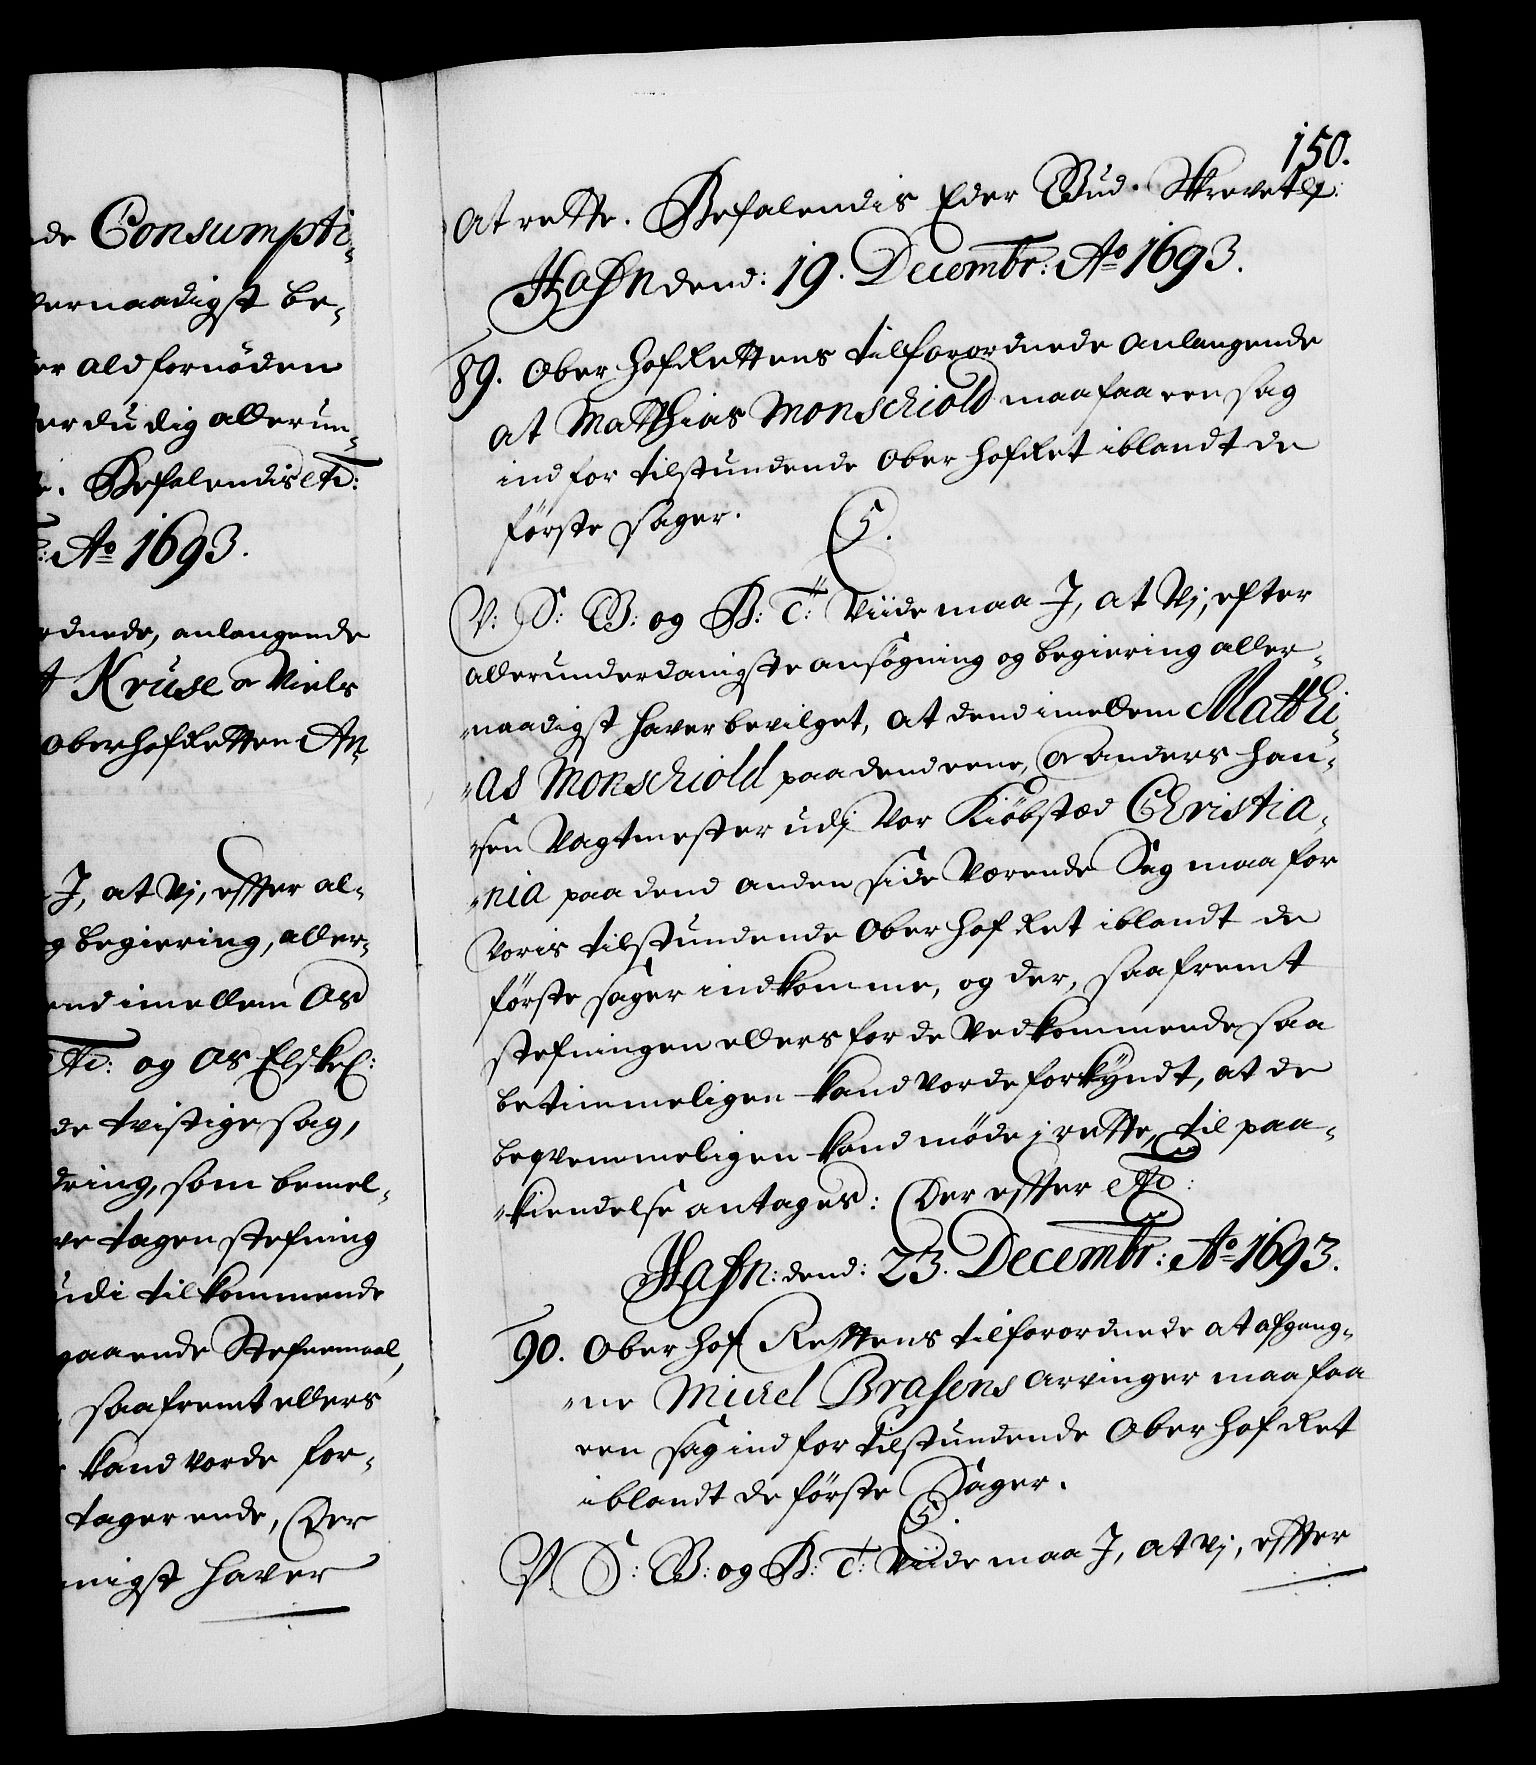 de Consumpti-
lernaadigst be-
er ald fornøden
er du dig allerun-
e. Befalendis etc:
: Ao 1693.
rdnede, anlangende
Kruse oc Niels
Oberhofretten An-
J, at Vj, effter al-
g begiering, aller-
end imellem Os
etc: og Os Elskel:
de tvistige sag,
dring, som bemel-
ve tagen stefning
udi tilkommende
gaaende Stefnemaal,
saafremt ellers
kand vorde for-
tager ende, Der
nigst haver
150.
at rette. Befalendis Eder Gud. Skrevet etc:
Hafn dend: 19. Decembr: Ao 1693.
89. Ober Hof Rettens tilforordnede anlangende
at Matthias Monschiold maa faa een sag
ind for tilstundende Ober Hof Ret iblandt de
første sager.
C5.
V: S: G: og B: T: Viide maa J, at Vj, efter
allerunderdanigste ansøgning og begiering aller-
naadigst haver bevilget, at dend imellem Matthi-
as Monschiold paa dend eene, oc Anders Han-
sen Vagtmester udj Vor Kiøbsted Christia-
nia paa dend anden side Værende Sag maa for
Voris tilstundende Ober Hof Ret iblandt de
første sager indkomme, og der, saafremt
stefningen ellers for de Vedkommende saa
betimmeligen kand vorde forkyndt, at de
beqvemmeligen kand møde j rette, til paa-
kiendelse antages: Der effter etc:
Hafn: dend: 23. Decembr: Ao 1693.
90. Ober Hof Rettens tilforordnede at afgang-
ne Michel Brasens Arvinger maa faa
een sag ind for tilstundende Ober Hof Ret
iblandt de første Sager.
C5.
V. S: G: og B: T: Viide maa J, at Vj, effter